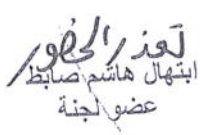 تعذر الحضور
ابتهال هاشم صابط
عضو لجنة